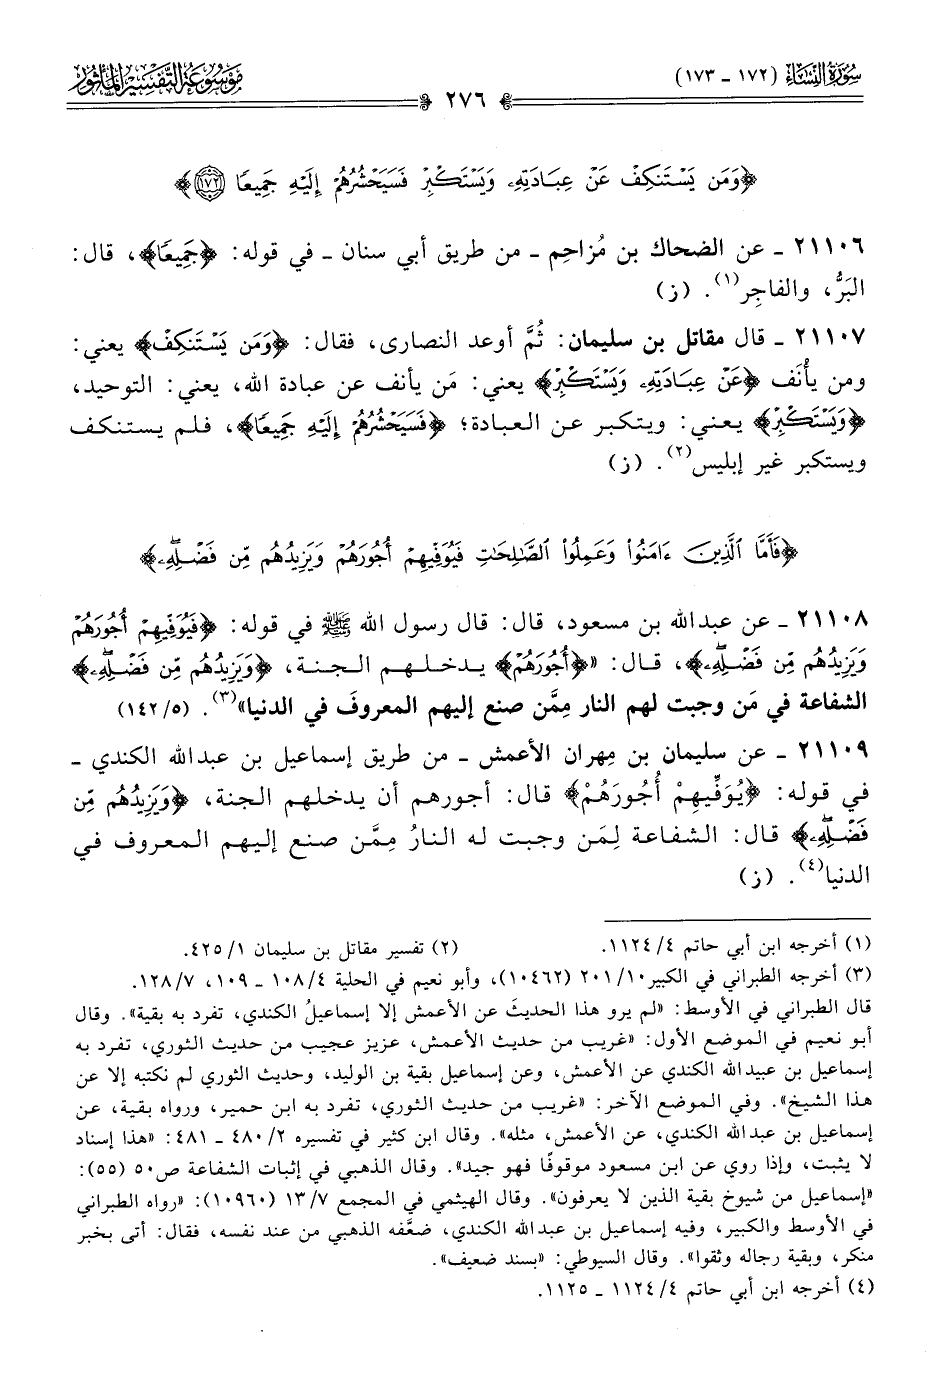 سُورَةُ النِّسَاءِ (١٧٢ - ١٧٣)
موسوعة التفسير المأثور
٢٧٦
﴿وَمَن يَسْتَنكِفْ عَنْ عِبَادَتِهِۦ وَيَسْتَكْبِرْ فَسَيَحْشُرُهُمْ إِلَيْهِ جَمِيعًا ١٧٢﴾
٢١١٠٦ - عن الضحاك بن مُزاحِم - من طريق أبي سنان - في قوله: ﴿جَمِيعًا﴾، قال:
البَرُّ، والفاجِر(١). (ز)
٢١١٠٧ - قال مقاتل بن سليمان: ثُمَّ أوعد النصارى، فقال: ﴿وَمَن يَسْتَنكِفْ﴾ يعني:
ومن يأْنَف ﴿عَنْ عِبَادَتِهِۦ وَيَسْتَكْبِرْ﴾ يعني: مَن يأنف عن عبادة الله، يعني: التوحيد،
﴿وَيَسْتَكْبِرْ﴾ يعني: ويتكبر عن العبادة؛ ﴿فَسَيَحْشُرُهُمْ إِلَيْهِ جَمِيعًا﴾، فلم يستنكف
ويستكبر غير إبليس(٢). (ز)
﴿فَأَمَّا ٱلَّذِينَ ءَامَنُوا۟ وَعَمِلُوا۟ ٱلصَّـٰلِحَـٰتِ فَيُوَفِّيهِمْ أُجُورَهُمْ وَيَزِيدُهُم مِّن فَضْلِهِۦۖ﴾
٢١١٠٨ - عن عبدالله بن مسعود، قال: قال رسول الله ﷺ في قوله: ﴿فَيُوَفِّيهِمْ أُجُورَهُمْ
وَيَزِيدُهُم مِّن فَضْلِهِۦۖ﴾، قال: «﴿أُجُورَهُمْ﴾ يدخلهم الجنة، ﴿وَيَزِيدُهُم مِّن فَضْلِهِۦۖ﴾
الشفاعة في مَن وجبت لهم النار مِمَّن صنع إليهم المعروفَ في الدنيا»(٣). (١٤٢/٥)
٢١١٠٩ - عن سليمان بن مِهران الأعمش - من طريق إسماعيل بن عبدالله الكندي -
في قوله: ﴿يُوَفِّيهِمْ أُجُورَهُمْ﴾ قال: أجورهم أن يدخلهم الجنة، ﴿وَيَزِيدُهُم مِّن
فَضْلِهِۦۖ﴾ قال: الشفاعة لِمَن وجبت له النارُ مِمَّن صنع إليهم المعروف في
الدنيا(٤). (ز)
(١) أخرجه ابن أبي حاتم ١١٢٤/٤. (٢) تفسير مقاتل بن سليمان ٤٢٥/١.
(٣) أخرجه الطبراني في الكبير ٢٠١/١٠ (١٠٤٦٢)، وأبو نعيم في الحلية ١٠٨/٤ - ١٠٩، ١٢٨/٧.
قال الطبراني في الأوسط: «لم يرو هذا الحديثَ عن الأعمش إلا إسماعيلُ الكندي، تفرد به بقية». وقال
أبو نعيم في الموضع الأول: «غريب من حديث الأعمش، عزيز عجيب من حديث الثوري، تفرد به
إسماعيل بن عبيدالله الكندي عن الأعمش، وعن إسماعيل بقية بن الوليد، وحديث الثوري لم نكتبه إلا عن
هذا الشيخ». وفي الموضع الآخر: «غريب من حديث الثوري، تفرد به ابن حمير، ورواه بقية، عن
إسماعيل بن عبدالله الكندي، عن الأعمش، مثله». وقال ابن كثير في تفسيره ٤٨٠/٢ - ٤٨١: «هذا إسناد
لا يثبت، وإذا روي عن ابن مسعود موقوفًا فهو جيد». وقال الذهبي في إثبات الشفاعة ص٥٠ (٥٥):
«إسماعيل من شيوخ بقية الذين لا يعرفون». وقال الهيثمي في المجمع ١٣/٧ (١٠٩٦٠): «رواه الطبراني
في الأوسط والكبير، وفيه إسماعيل بن عبدالله الكندي، ضعَّفه الذهبي من عند نفسه، فقال: أتى بخبر
منكر، وبقية رجاله وثقوا». وقال السيوطي: «بسند ضعيف».
(٤) أخرجه ابن أبي حاتم ١١٢٤/٤ - ١١٢٥.